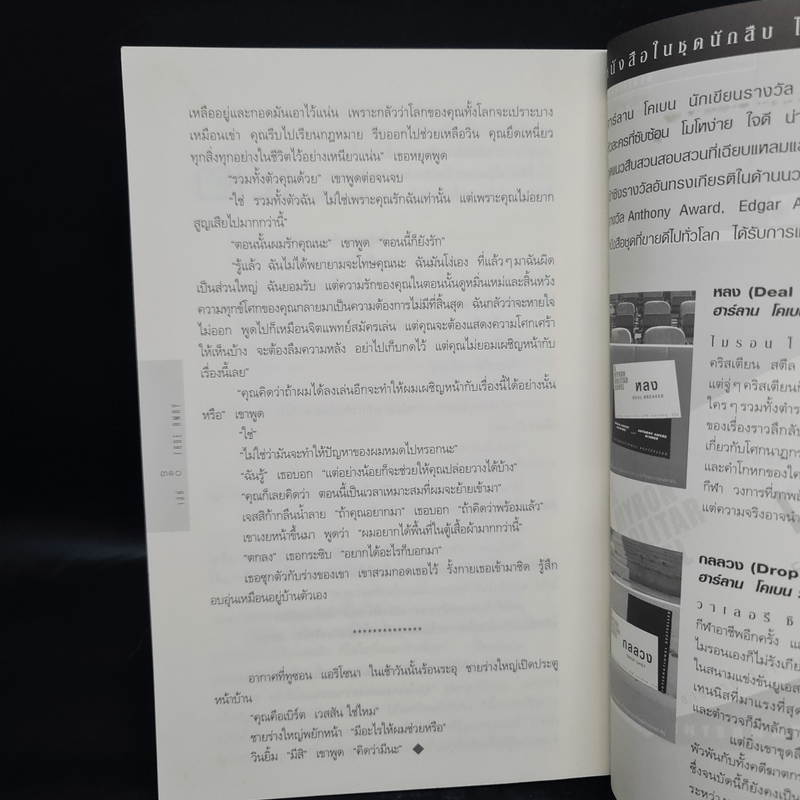 เหลืออยู่และกอดมันเอาไว้แน่น เพราะกลัวว่าโลกของคุณทั้งโลกจะเปราะบาง
เหมือนเช่า คุณรีบไปเรียนกฎหมาย รีบออกไปช่วยเหลือวิน คุณยึดเหนี่ยว
ทุกสิ่งทุกอย่างในชีวิตไว้อย่างเหนียวแน่น” เธอหยุดพูด
“รวมทั้งตัวคุณด้วย” เขาพูดต่อจนจบ
“ใช่ รวมทั้งตัวฉัน ไม่ใช่เพราะคุณรักฉันเท่านั้น แต่เพราะคุณไม่อยาก
สูญเสียไปมากกว่านี้”
“ตอนนั้นผมรักคุณนะ” เขาพูด “ตอนนี้ก็ยังรัก”
“รู้แล้ว ฉันไม่ได้พยายามจะโทษคุณนะ ฉันมันโง่เอง ที่แล้วๆมาฉันผิด
เป็นส่วนใหญ่ ฉันยอมรับ แต่ความรักของคุณในตอนนั้นดูหมิ่นเหม่และสิ้นหวัง
ความทุกข์โศกของคุณกลายมาเป็นความต้องการไม่มีที่สิ้นสุด ฉันกลัวว่าจะหายใจ
ไม่ออก พูดไปก็เหมือนจิตแพทย์สมัครเล่น แต่คุณจะต้องแสดงความโศกเศร้า
ให้เห็นบ้าง จะต้องลืมความหลัง อย่าไปเก็บกดไว้ แต่คุณไม่ยอมเผชิญหน้ากับ
เรื่องนี้เลย”
“คุณคิดว่าถ้าผมได้ลงเล่นอีกจะทำให้ผมเผชิญหน้ากับเรื่องนี้ได้อย่างนั้น
หรือ” เขาพูด
“ใช่”
“ไม่ใช่ว่ามันจะทำให้ปัญหาของผมหมดไปหรอกนะ”
“ฉันรู้” เธอบอก “แต่อย่างน้อยก็จะช่วยให้คุณปล่อยวางได้บ้าง”
“คุณก็เลยคิดว่า ตอนนี้เป็นเวลาเหมาะสมที่ผมจะย้ายเข้ามา”
เจสสิก้ากลืนน้ำลาย “ถ้าคุณอยากมา” เธอบอก “ถ้าคิดว่าพร้อมแล้ว”
เขาเงยหน้าขึ้นมา พูดว่า “ผมอยากได้พื้นที่ในตู้เสื้อผ้ามากกว่านี้”
“ตกลง” เธอกระซิบ “อยากได้อะไรก็บอกมา”
เธอซุกตัวกับร่างของเขา เขาสวมกอดเธอไว้ รั้งกายเธอเข้ามาชิด รู้สึก
อบอุ่นเหมือนอยู่บ้านตัวเอง
**************
อากาศที่ทูซอน แอริโซนา ในเช้าวันนั้นร้อนระอุ ชายร่างใหญ่เปิดประตู
หน้าบ้าน
“คุณคือเบิร์ต เวสสัน ใช่ไหม”
ชายร่างใหญ่พยักหน้า “มีอะไรให้ผมช่วยหรือ”
วินยิ้ม “มีสิ” เขาพูด “คิดว่ามีนะ” ◆
FADE AWAY
เฟด
หนังสือในชุดนักสืบ
ฮาร์ลาน โคเบน นักเขียนรางวัล
ตัวละครที่ซับซ้อน โมโทง่าย ใจดี
แนวสืบสวนสอบสวนที่เฉียบแหลม
ชิงรางวัลอันทรงเกียรติในด้าน
รางวัล Anthony Award, Edgar
หนังสือชุดที่ขายดีไปทั่วโลก ได้รับการ
หลง (Deal
ฮาร์ลาน โคเบน
ไมรอน
คริสเตียน สตีล
แต่จู่ๆคริสเตียน
ใครๆรวมทั้งตำรวจ
ของเรื่องราวลึกลับ
เกี่ยวกับโศกนาฏกรรม
และคำโกหกของ
กีฬา วงการที่ภาพ
แต่ความจริงอาจนำ
หลง
DEAL BREAKER
กลลวง (Drop
ฮาร์ลาน โคเบน
วาเลอรี
กีฬาอาชีพอีกครั้ง
ไมรอนเองก็ไม่รังเกียจ
ในสนามแข่งขันยูเอส
เทนนิสที่มาแรงที่สุด
และตำรวจก็มีหลักฐาน
แต่ยิ่งเขาขุด
พัวพันกับทั้งคดีฆาตกรรม
ซึ่งจนบัดนี้ก็ยังคงเป็น
ระหว่าง
กลลวง